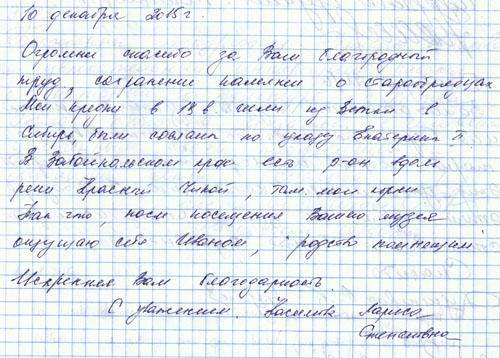 10 декабря 2015 г.
Огромное спасибо за Ваш благородный
труд, сохранение памяти о старообрядцах
Мои предки в 18 в. шли из Ветки в
Сибирь, были сосланы по указу Екатерины II
В Забайкальском крае есть р-он вдоль
реки Красный Чикой, там мои корни
Так что, после посещения Вашего музея
ощущаю себя Иваном, родство помнящим
Искренняя Вам благодарность.
С уважением. Лариса
Степановна